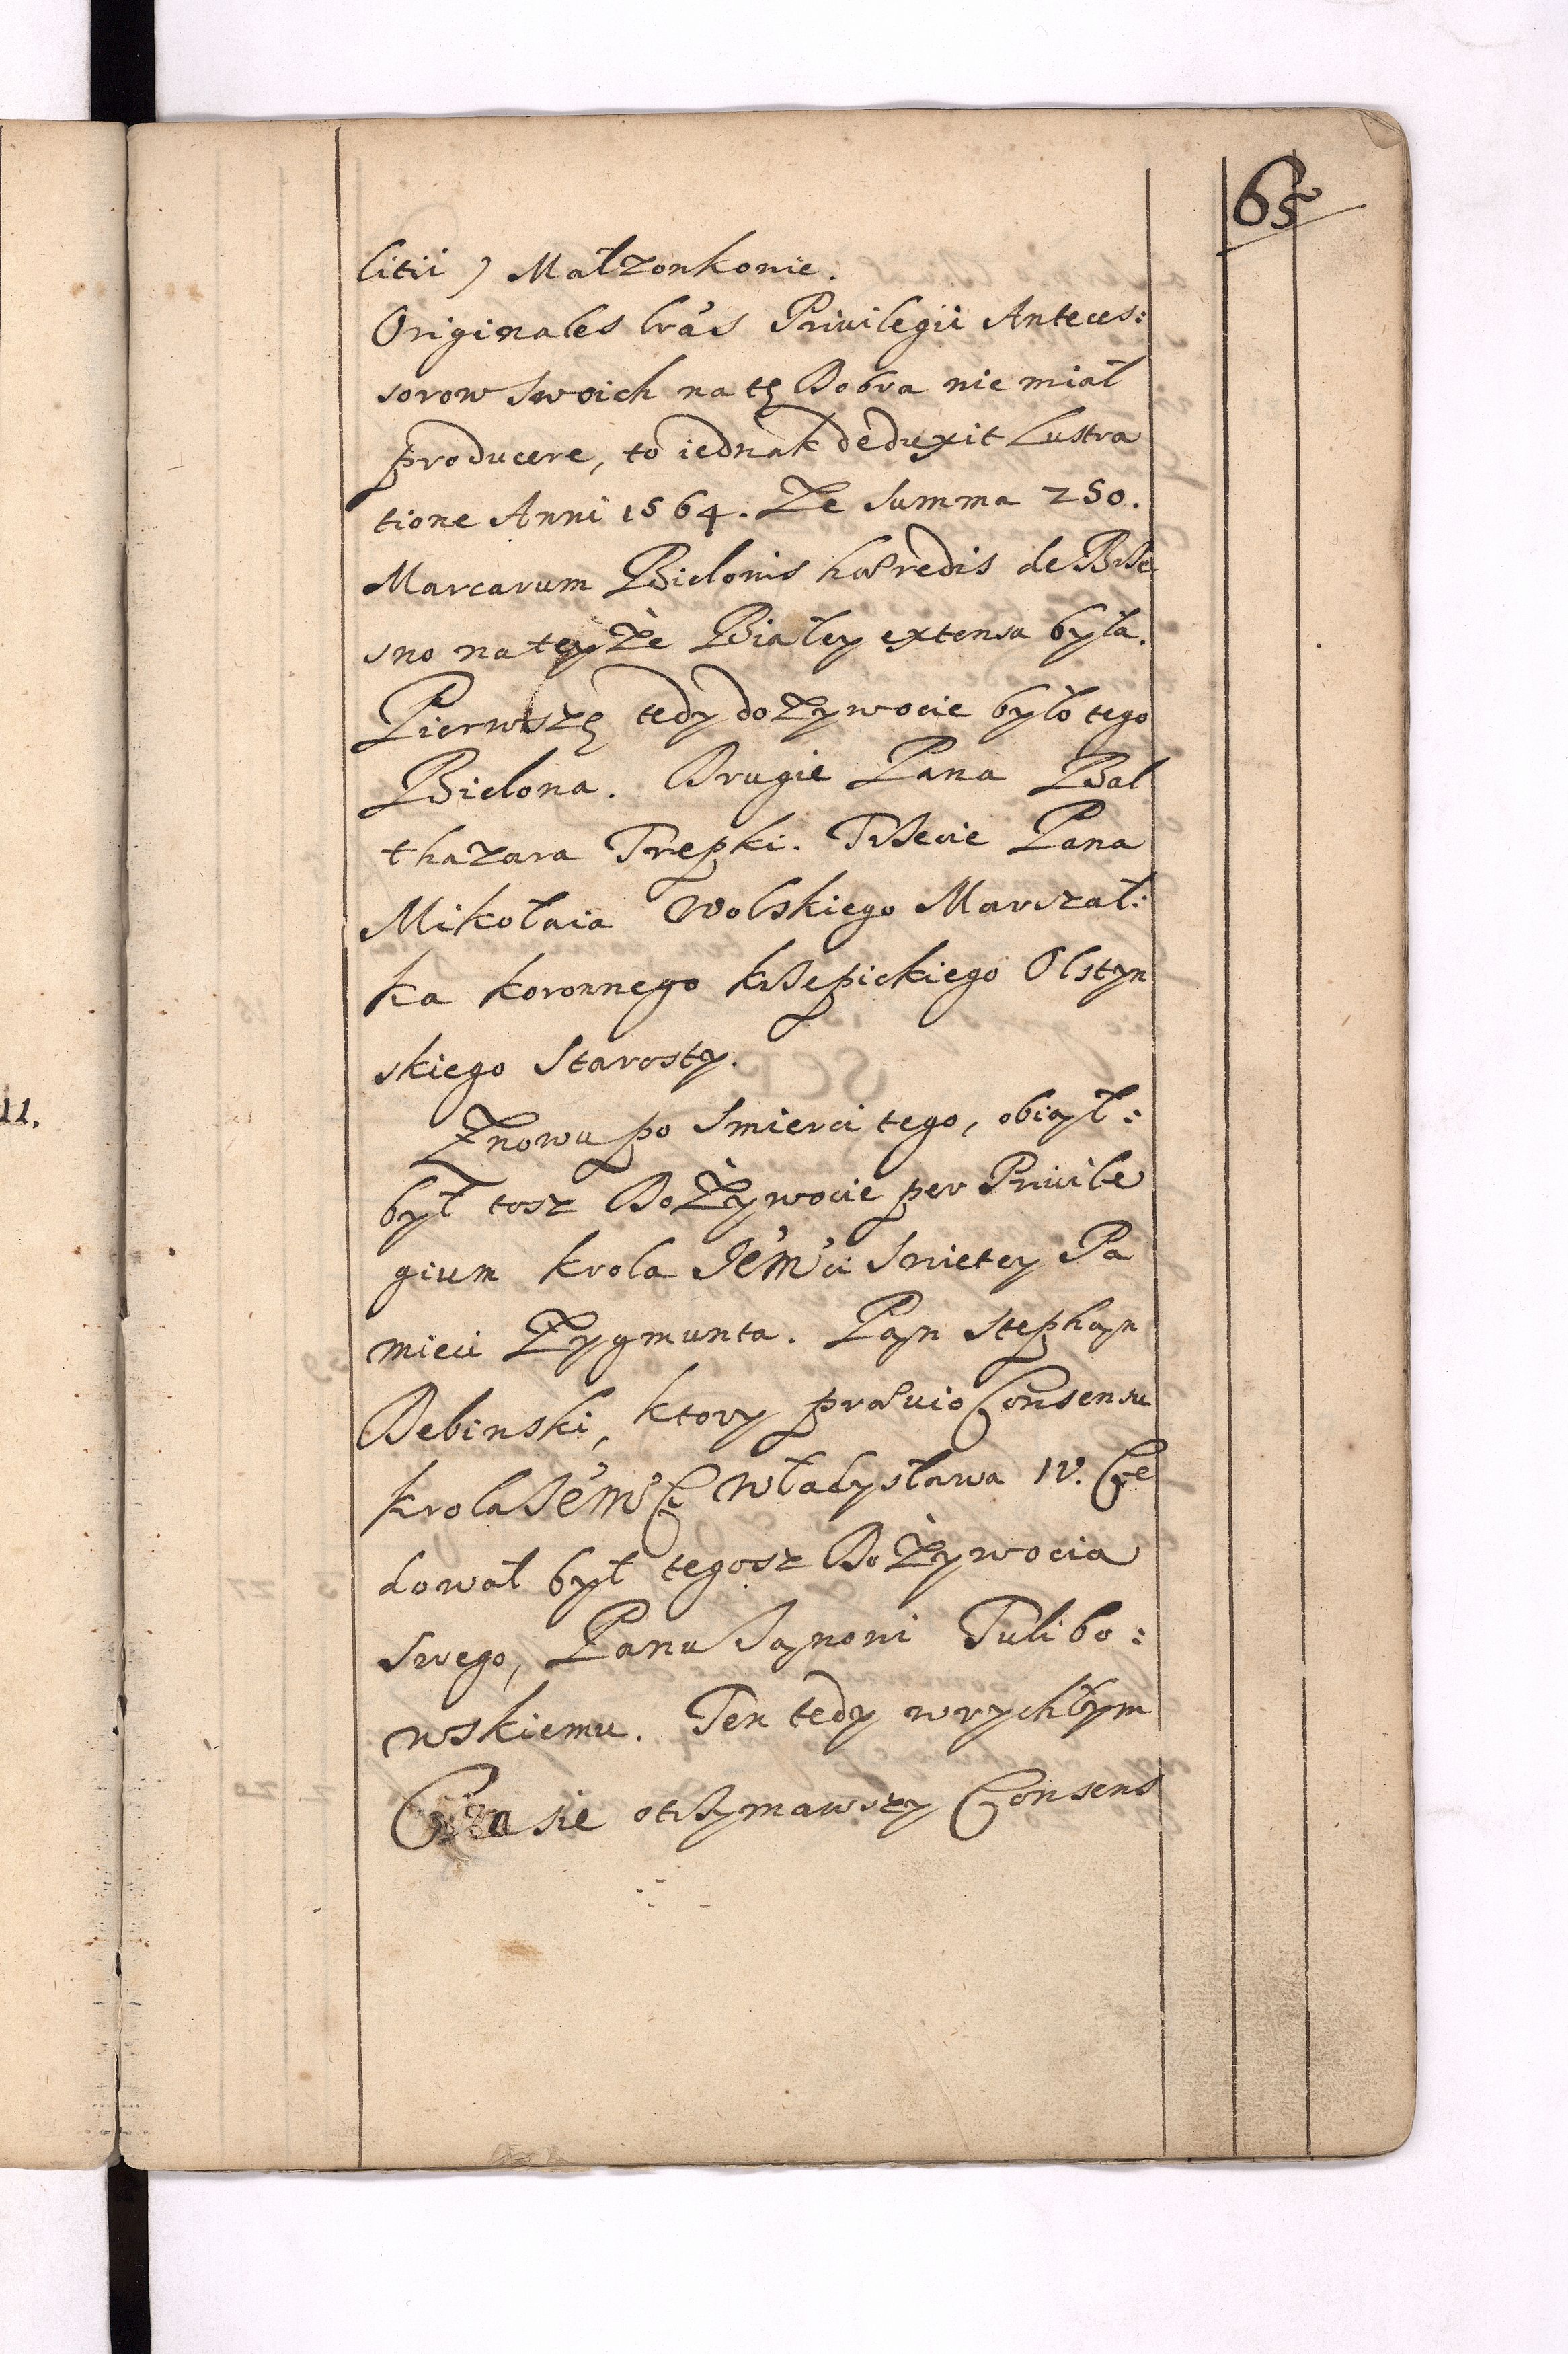 65
litii) Małzonkowie.
Originales lrás Privilegii Anteces:
sorow swoich na tę Dobra nie miał
producere, to iednak deduxit Lustra
tione Anni 1564. Ze summa 250.
Marcarum Bielonis hæredis de Brze
sno na teyże Białey extensa była.
Pierwszę tedy dozywocie było tego
Bielona. Drugie Pana Bal
thazara Trepki. Trzecie Pana
Mikołaia Wolskiego Marszał:
ka koronnego krzepickiego Olstyn
skiego Starosty.
Znowu po smierci tego, obiął:
był tosz Dożywocie per Privile
gium krola Jémći Swietey Pa
mieci Zygmunta. Pąn Stephąn
Debinski, ktory prævio Consensu
krola JémCi Władysława IV. Ce
dował był tegosz Dożywocia
swego, Panu Jąnowi Tulibo:
wskiemu. Ten tedy w rychłym
Czasie otrzymawszy Consens
11.